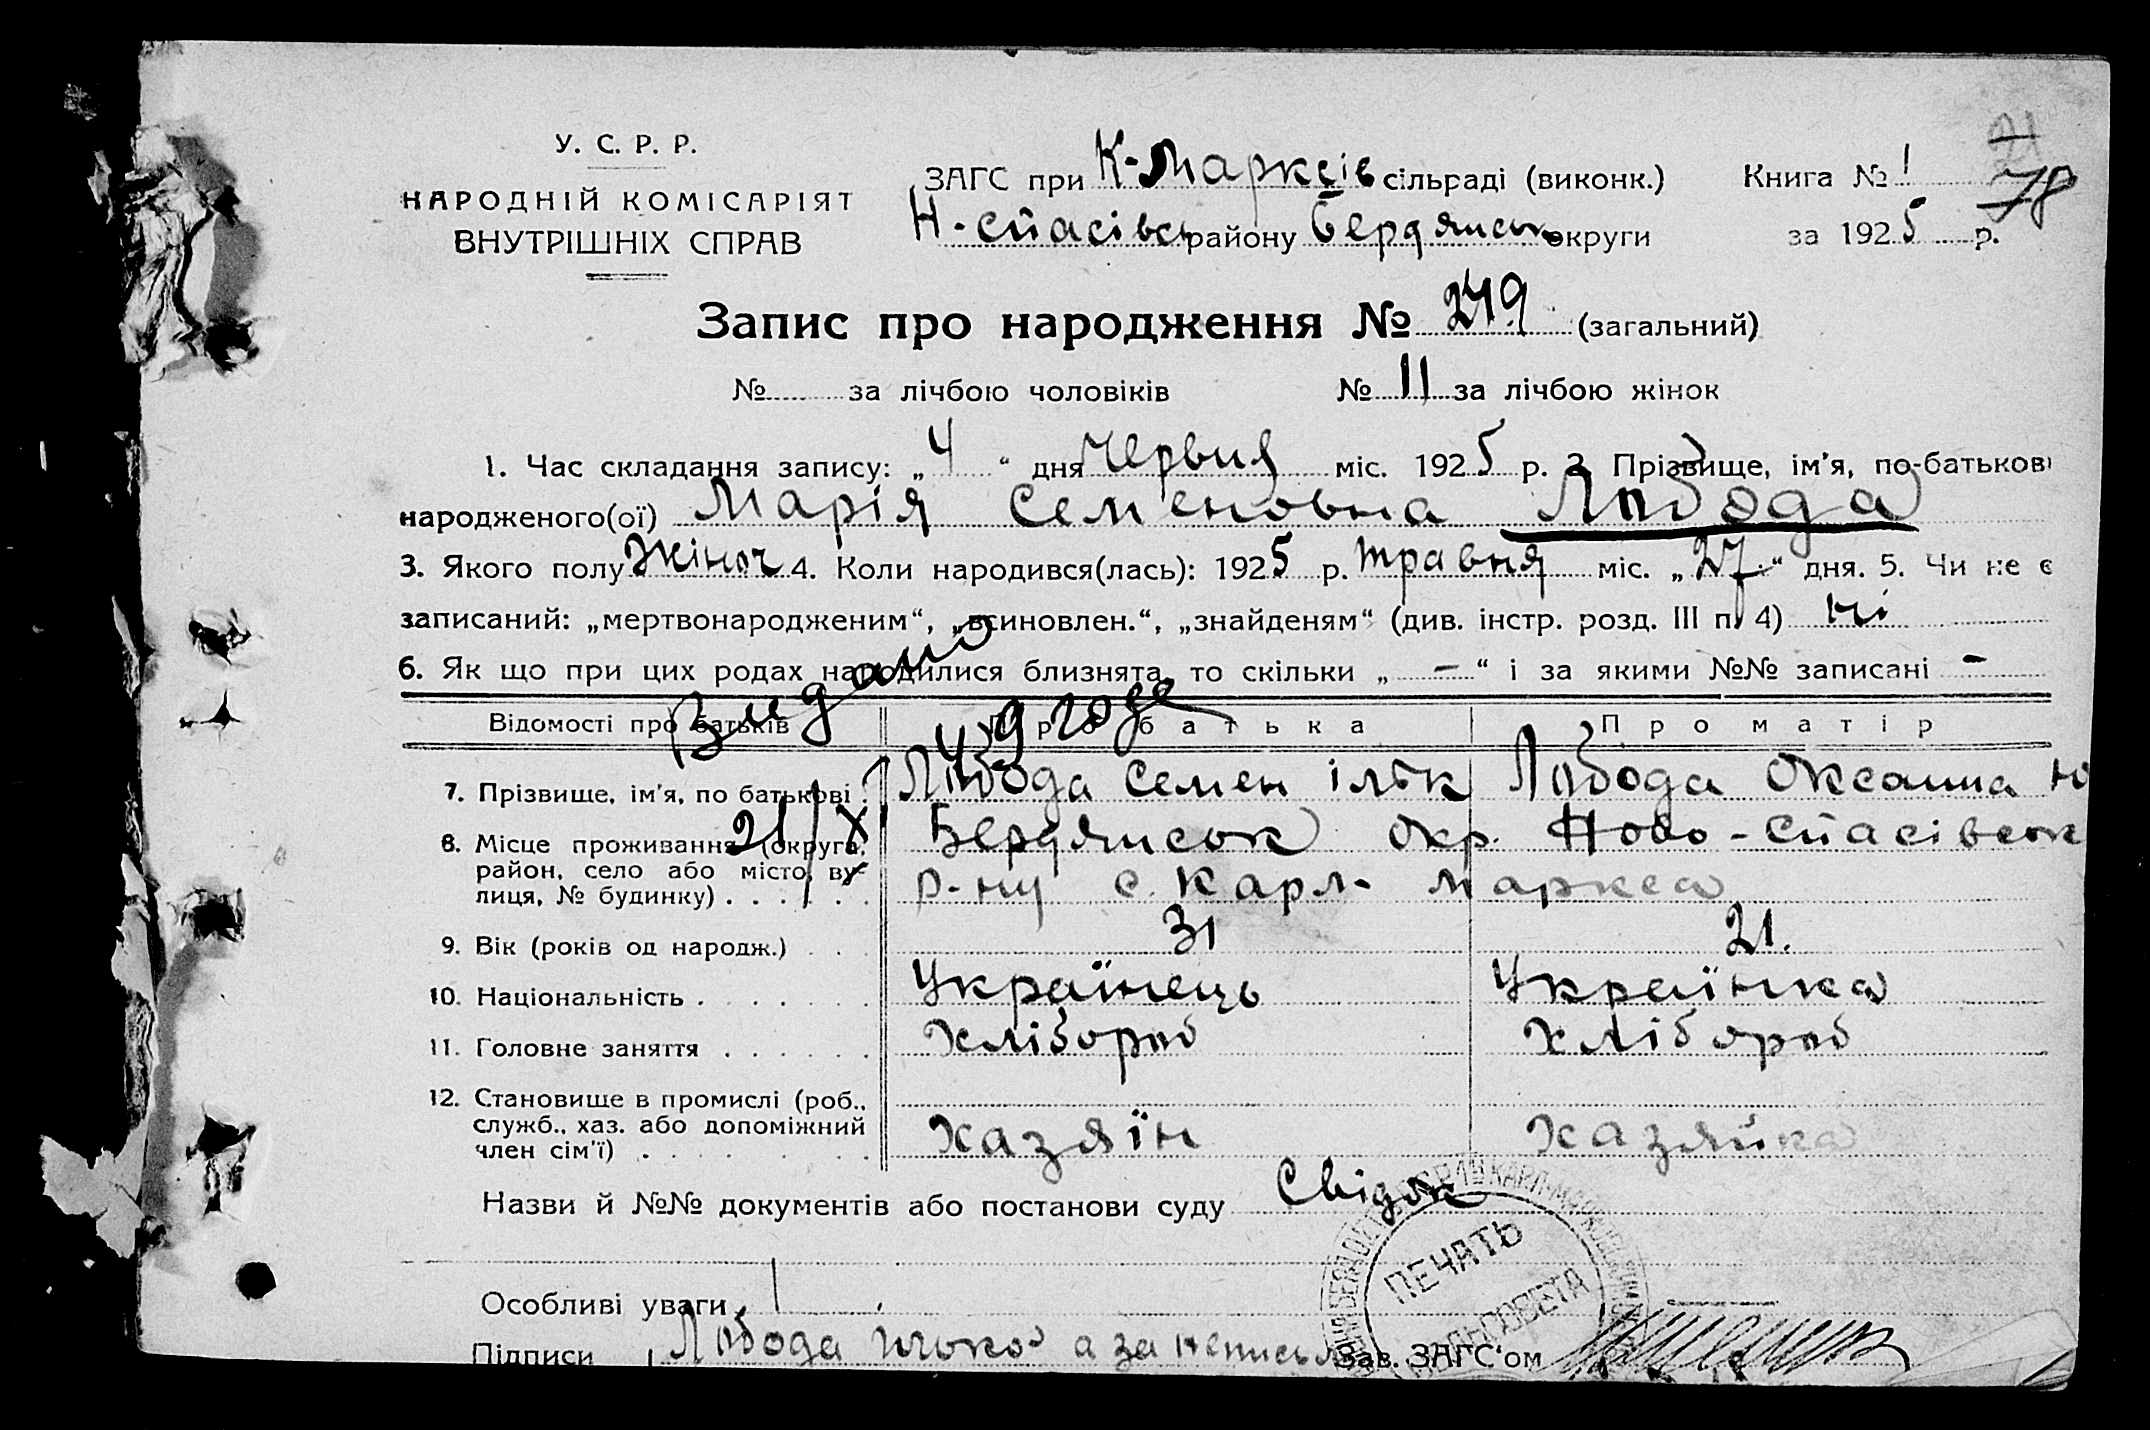 У. С. Р. Р.
НАРОДНІЙ КОМІСАРІЯТ
ВНУТРІШНІХ СПРАВ
ЗАГС при К-Марксів сільраді (виконк.) Книга № 1
21
78
Н-Спасівсь району Бердянськ округи за 1925 р.
Запис про народження № 249 (загальний)
№ за лічбою чоловіків № 11 за лічбою жінок
1. Час складання запису: „4“ дня Червня міс. 1925 р. 2. Прізвище, ім'я, по-батькові
народженого(ої) Марія Семеновна Лобода
3. Якого полу Жіноч 4. Коли народився(лась): 1925 р. травня міс. „27“ дня. 5. Чи не є
записаний: „мертвонародженим“, „всиновлен.“, „знайденям“ (див. інстр. розд. III п. 4) ні
6. Як що при цих родах народилися близнята, то скільки „ — “ і за якими №№ записані -
Видано
49 года
21/X
Відомості про батьків Про батька Про матір
7. Прізвище, ім'я, по батькові Лобода Семен ільк Лобода Оксанна
8. Місце проживання (округа, Бердянськ окр. Ново-Спасівськ
район, село або місто, ву- р-ну с. Карл-Маркса
лиця, № будинку)
9. Вік (років од народж.) 31 21.
10. Національність Українець Українка
11. Головне заняття Хлібороб Хлібороб
12. Становище в промислі (роб.,
служб., хаз. або допоміжний Хазяїн Хазяйка
член сім'ї)
Назви й №№ документів або постанови суду Свідок
ПЕЧАТЬ
СЕЛЬСОВЕТА
Особливі уваги
Підписи Лобода а за Зав. ЗАГС'ом